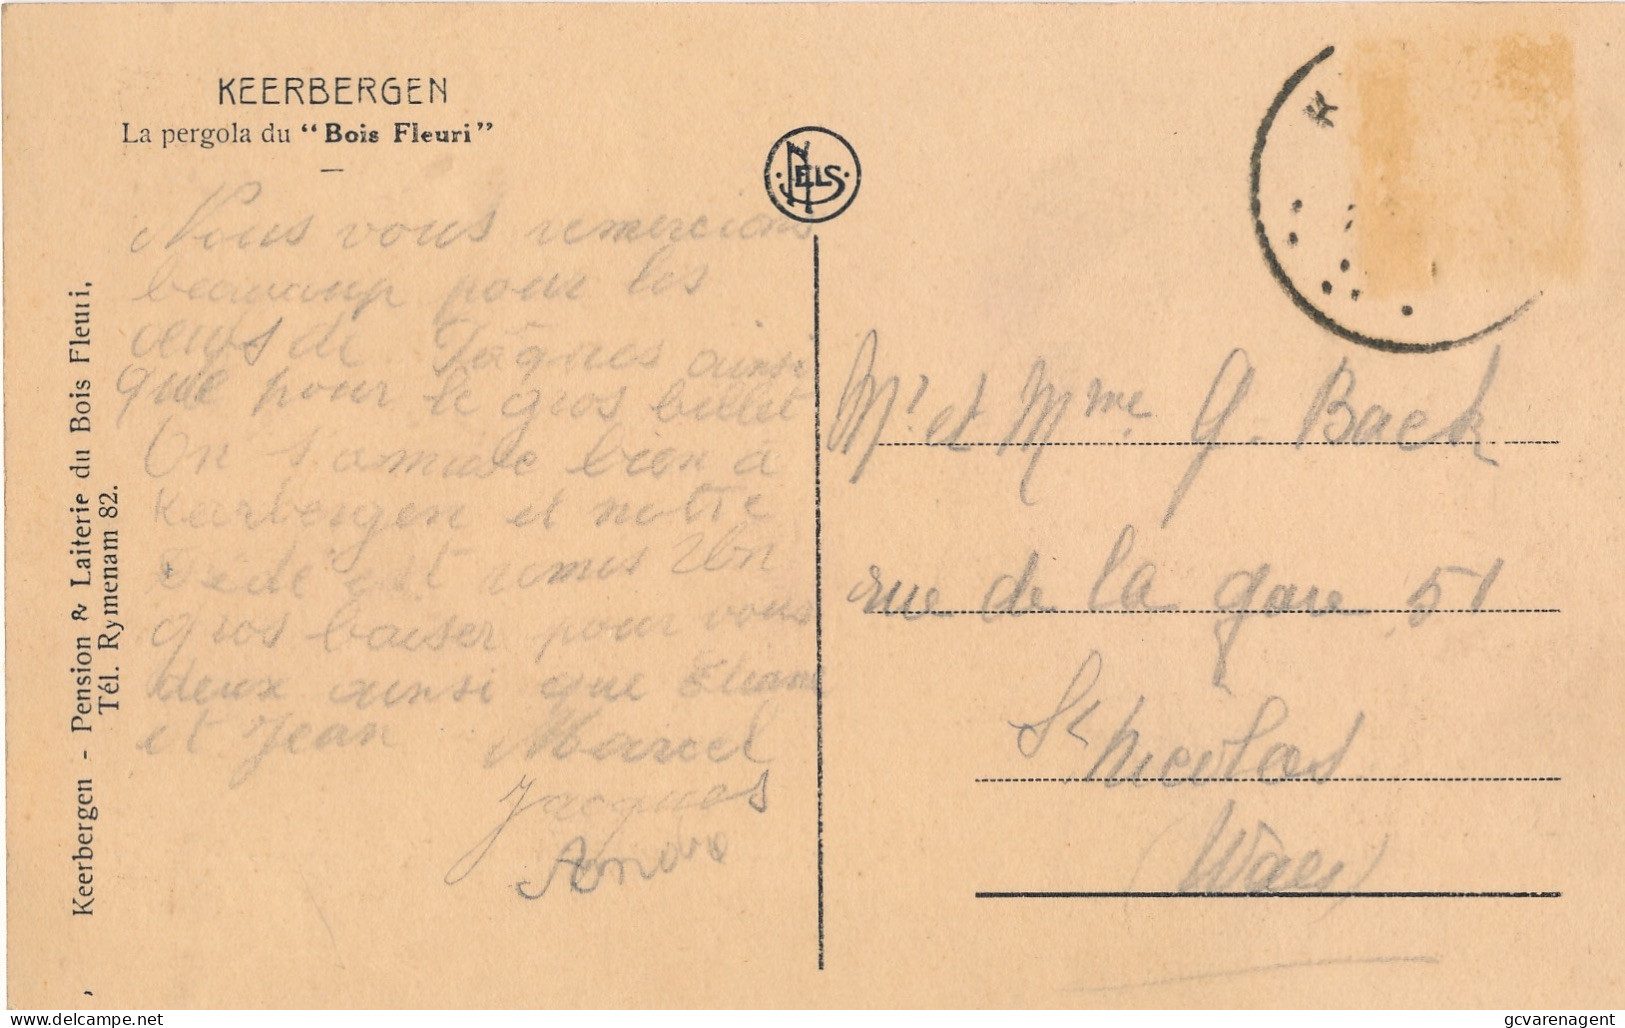 KEERBERGEN
La pergola du "Bois Fleuri"
NELS
Nous vous remercions
beaucoup pour les
oeufs de Pâques ainsi
que pour le gros billet
On s'amuse bien à
Keerbergen et notre
Dédé est remis Un
gros baiser pour vous
deux ainsi que Eliane
et Jean Marcel
Jacques
André
Keerbergen - Pension & Laiterie du Bois Fleuri,
Tél. Rymenam 82.
K
Mr et Mme G. Baek
rue de la gare 51
St Nicolas
(Waes)
gcvarenagent